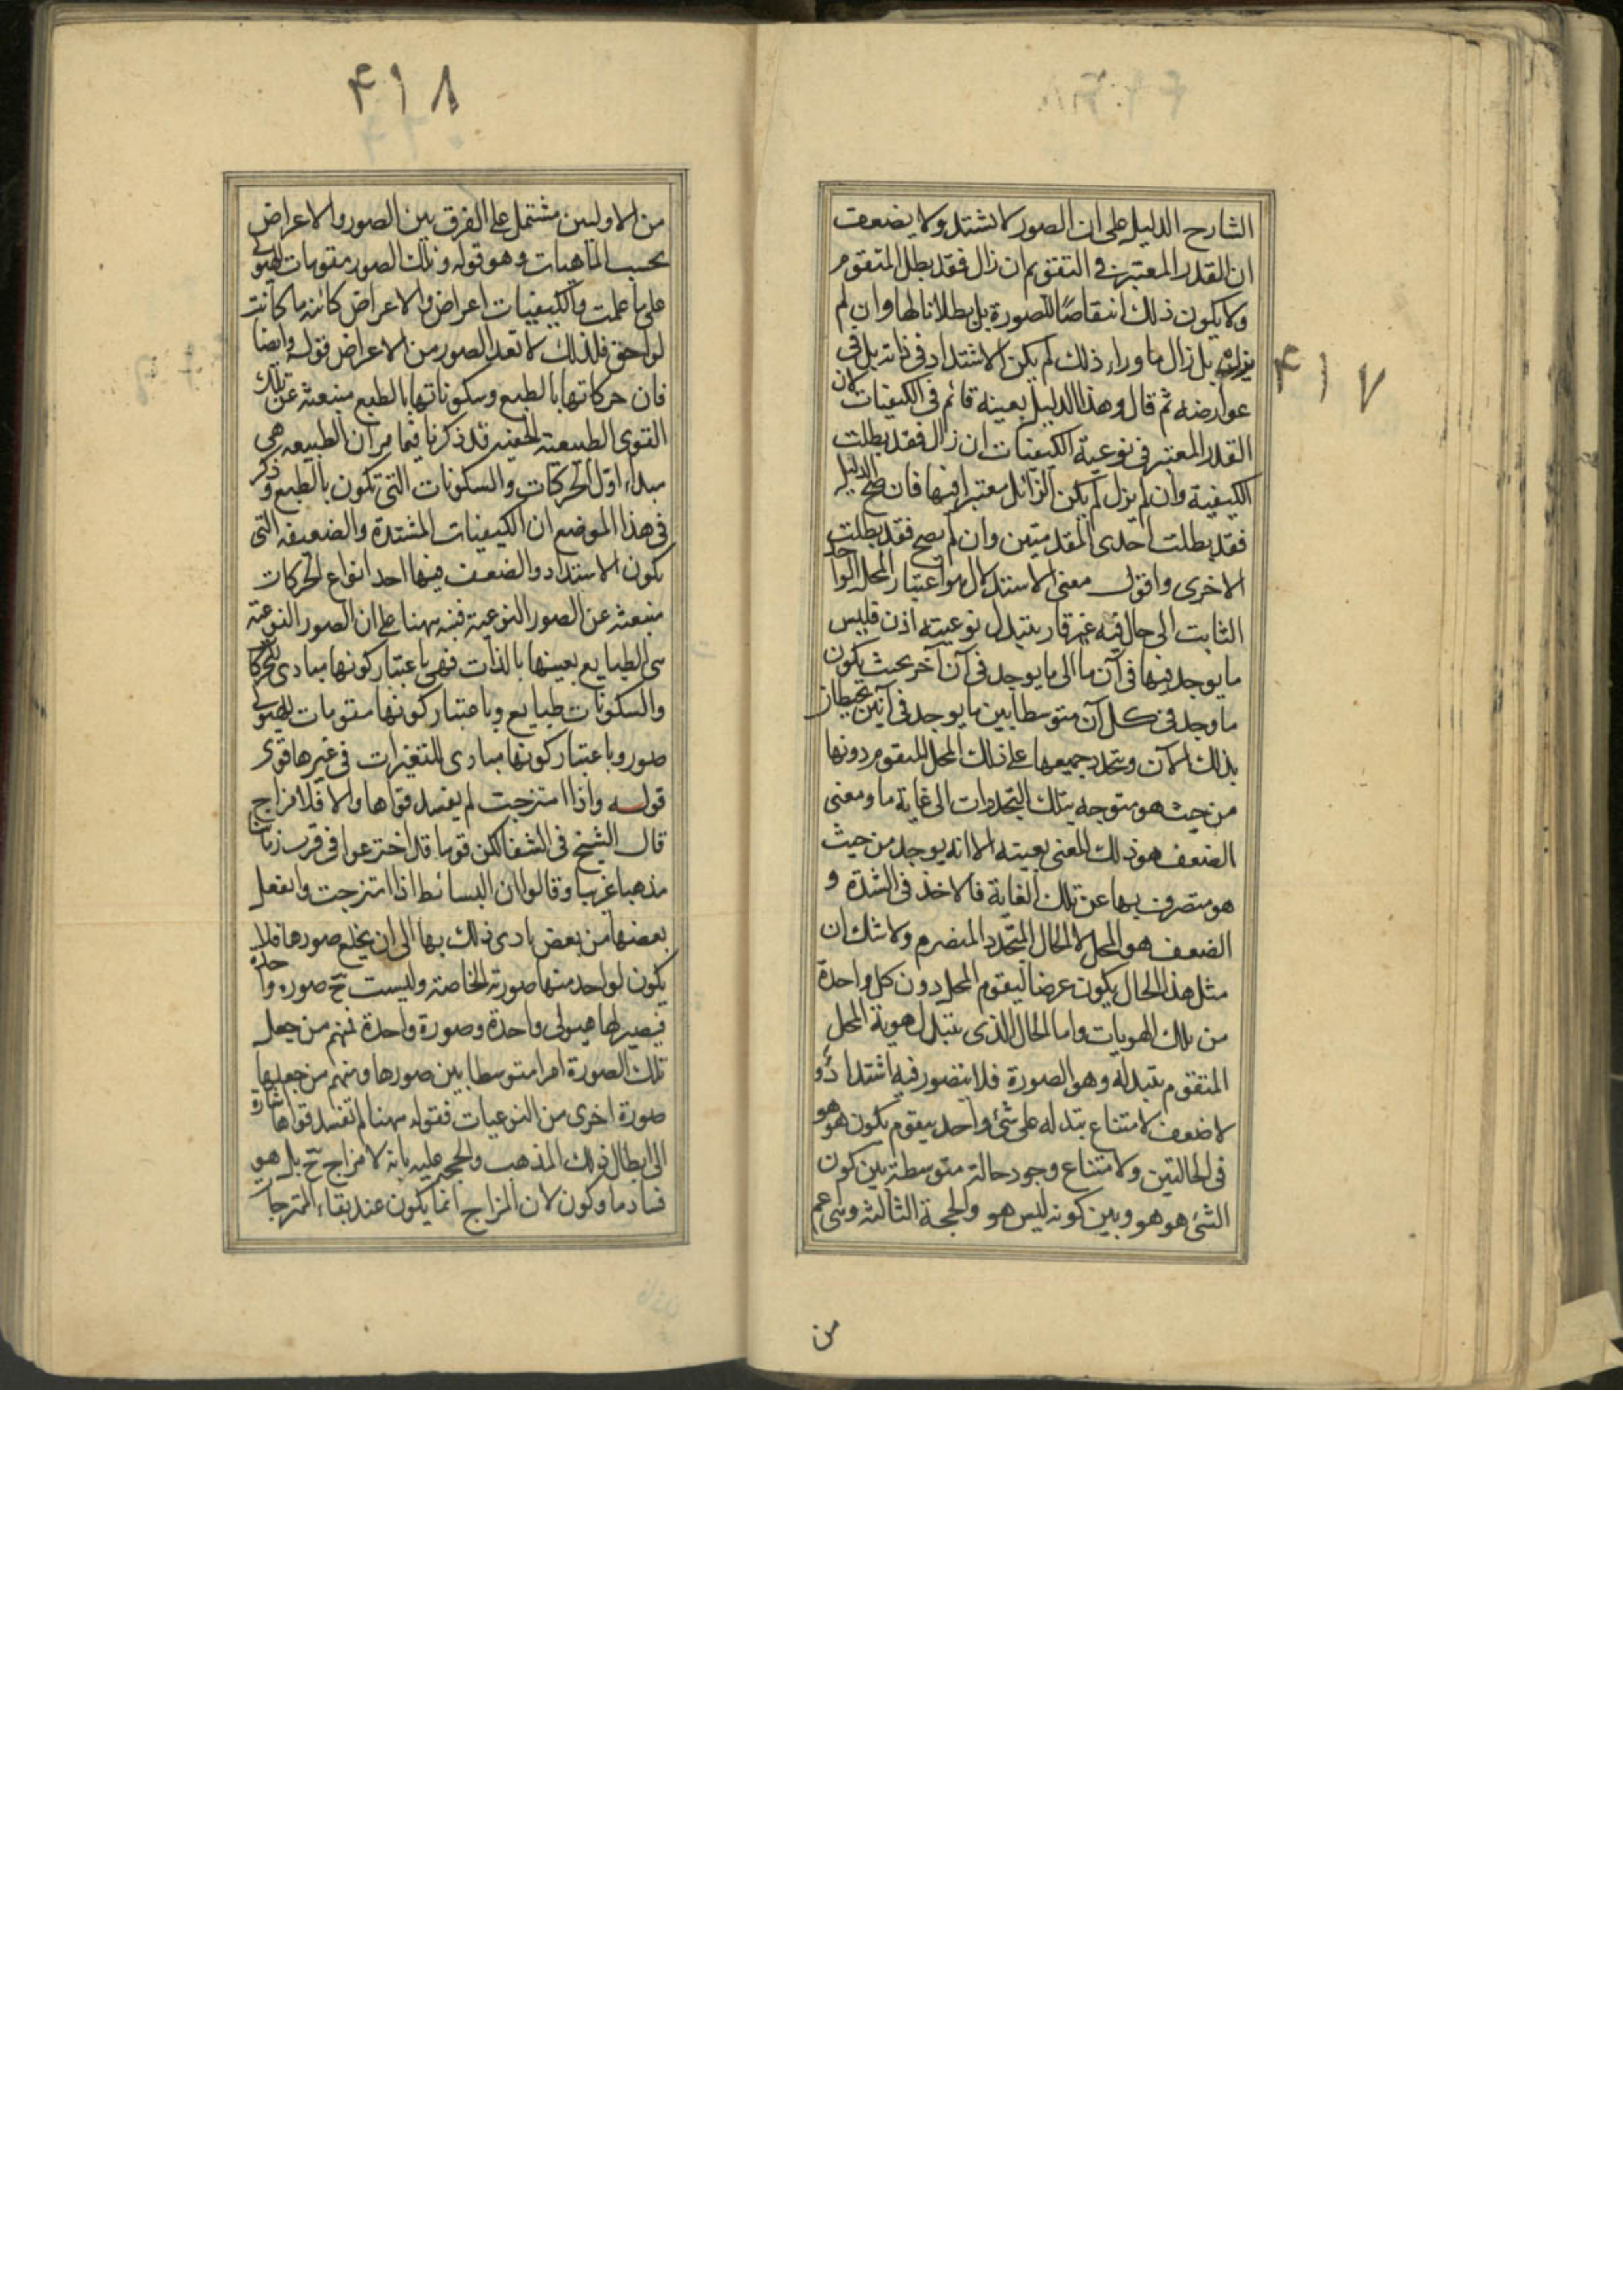 ۴۱۷
الشارح الدليل على ان الصور لا تشتد ولا يضعف
ان القدر المعتبر في التقوم ان زال فقد بطل المتقوم
ولا يكون ذلك انتقاصا للصورة بل بطلانا لها وان لم
يزل بل زال ما وراء ذلك لم يكن الاشتداد في ذاته بل في
عوارضه ثم قال وهذا الدليل بعينه قائم في الكيفيات لان
القدر المعتبر في نوعية الكيفيات ان زال فقد بطلت
الكيفية وان لم يزل لم يكن الزائل معتبرا فيها فان صح الدليل
فقد بطلت احدى المقدمتين وان لم يصح فقد بطلت
الاخرى واقول معنى الاستدلال هو اعتبار المحل الواحد
الثابت الى حال فيه غير قار يتبدل نوعيته اذن قليس
ما يوجد فيها في آن ما الى ما يوجد في آن آخر بحيث يكون
ما وجد في كل آن متوسطا بين ما يوجد في آنين يحيطان
بذلك الآن ويتجدد جميعها على ذلك المحل المتقوم دونها
من حيث هو متوجه بتلك التجددات الى غاية ما ومعنى
الضعف هو ذلك المعنى بعينه الا انه يوجد من حيث
هو منصرف بها عن تلك الغاية فالاخذ في الشدة و
الضعف هو المحل لا الحال المتجدد المنصرم ولا شك ان
مثل هذا الحال يكون عرضا ليقوم المحل دون كل واحدة
من تلك الهويات واما الحال الذي يتبدل هوية المحل
المتقوم بتبدله وهو الصورة فلا يتصور فيه اشتداد و
لا ضعف لامتناع تبدله على شئ واحد يتقوم يكون هو هو
في الحالتين ولامتناع وجود حالة متوسطة بين كون
الشئ هو هو وبين كونه ليس هو والحجة الثالثة وهي اعم
من
۴۱۸
من الاوليين مشتمل على الفرق بين الصور والاعراض
بحسب الماهيات وهو قوله وتلك الصور مقومات للهيولى
على ما علمت والكيفيات اعراض والاعراض كائنة ما كانت
لواحق فلذلك لا تعد الصور من الاعراض قوله وايضا
فان حركاتها بالطبع وسكوناتها بالطبع منبعثة عن تلك
القوى الطبيعة الخفية قد ذكرنا فيما مر ان الطبيعه هي
مبداء اول الحركات والسكونات التي تكون بالطبع وذكر
في هذا الموضع ان الكيفيات المشتدة والضعيفه التي
يكون الاستداد والضعف فيها احد انواع الحركات
منبعثه عن الصور النوعية فنبه ههنا على ان الصور النوعية
هي الطبايع بعينها بالذات فهي باعتبار كونها مبادى للحركات
والسكونات طبايع وباعتبار كونها مقومات للهيولى
صور وباعتبار كونها مبادى للتغيرات في غيرها قوى
قوله واذا امتزجت لم يفسد قواها والا فلا مزاج
قال الشيخ في الشفا لكن قوما قد اخترعوا في قرب زماننا
مذهبا غريبا وقالوا ان البسائط اذا امتزجت وانفعل
بعضها من بعض يادى ذلك بها الى ان يخلع صورها فلا
يكون لواحد منها صورته الخاصة وليست ح صوره واحدة
فيصير لها هيولى واحدة وصورة واحدة فمنهم من جعل
تلك الصورة امرا متوسطا بين صورها ومنهم من جعلها
صورة اخرى من النوعيات فقوله ههنا لم تفسد قواها اشارة
الى ابطال ذلك المذهب والحجة عليه بانه لا مزاج ح بل هو
فساد ما وكون لان المزاج انما يكون عند بقاء الممتزجات